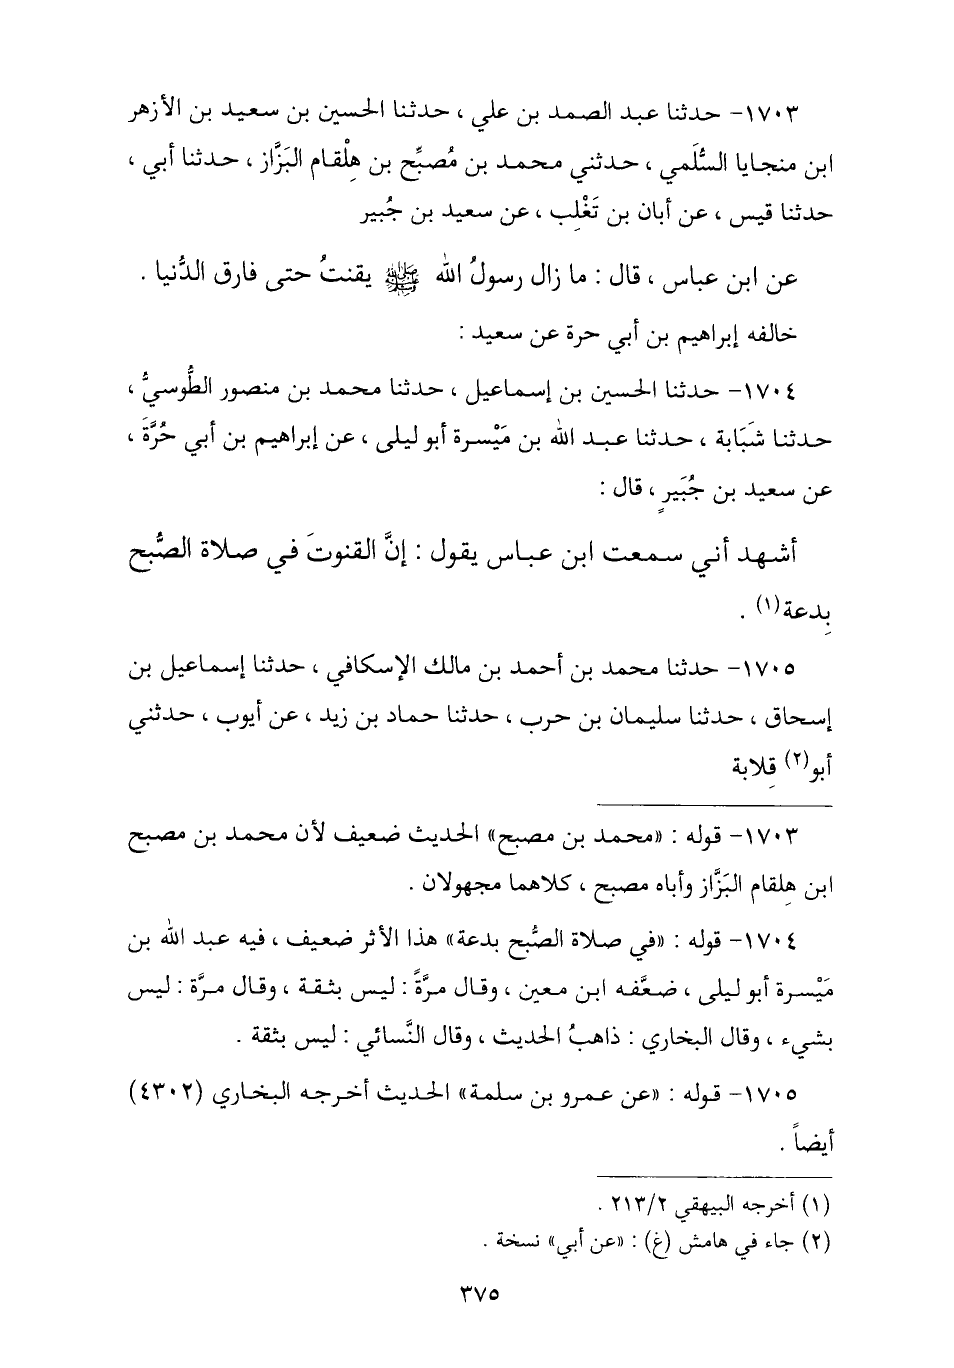 ١٧٠٣- حدثنا عبد الصمد بن علي ، حدثنا الحسين بن سعيد بن الأزهر
ابن منجايا السُّلَمي ، حدثني محمد بن مُصبِّح بن هِلْقام البَزَّاز ، حدثنا أبي ،
حدثنا قيس ، عن أبان بن تَغْلِب ، عن سعيد بن جُبير
عن ابن عباس ، قال : ما زال رسولُ الله ﷺ يقنتُ حتى فارق الدُّنيا .
خالفه إبراهيم بن أبي حرة عن سعيد :
١٧٠٤- حدثنا الحسين بن إسماعيل ، حدثنا محمد بن منصور الطُّوسيُّ ،
حدثنا شَبَابة ، حدثنا عبد الله بن مَيْسرة أبو ليلى ، عن إبراهيم بن أبي حُرَّةَ ،
عن سعيد بن جُبَيرٍ ، قال :
أشهد أني سمعت ابن عباس يقول : إنَّ القنوتَ في صلاة الصُّبح
بِدعة(١) .
١٧٠٥- حدثنا محمد بن أحمد بن مالك الإسكافي ، حدثنا إسماعيل بن
إسحاق ، حدثنا سليمان بن حرب ، حدثنا حماد بن زيد ، عن أيوب ، حدثني
أبو(٢) قِلابة
١٧٠٣- قوله : «محمد بن مصبح» الحديث ضعيف لأن محمد بن مصبح
ابن هِلقام البَزَّاز وأباه مصبح ، كلاهما مجهولان .
١٧٠٤- قوله : «في صلاة الصُّبح بدعة» هذا الأثر ضعيف ، فيه عبد الله بن
مَيْسرة أبو ليلى ، ضعَّفه ابن معين ، وقال مرَّةً : ليس بثقة ، وقال مرَّة : ليس
بشيء ، وقال البخاري : ذاهبُ الحديث ، وقال النَّسائي : ليس بثقة .
١٧٠٥- قوله : «عن عمرو بن سلمة» الحديث أخرجه البخاري (٤٣٠٢)
أيضاً .
(١) أخرجه البيهقي ٢/‏٢١٣ .
(٢) جاء في هامش (غ) : «عن أبي» نسخة .
٣٧٥